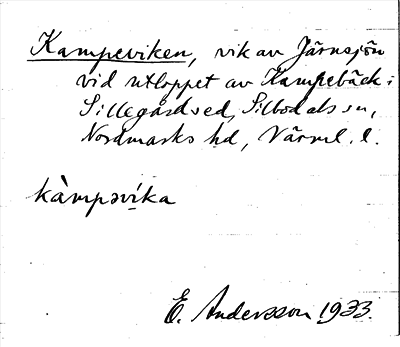 Kampeviken, vik av Järnsjön
vid utloppet av Kampebäck i
Sillegårdsed, Silbodals sn,
Nordmarks hd, Värml. l.
kàmpəvíka
E. Andersson 1933.